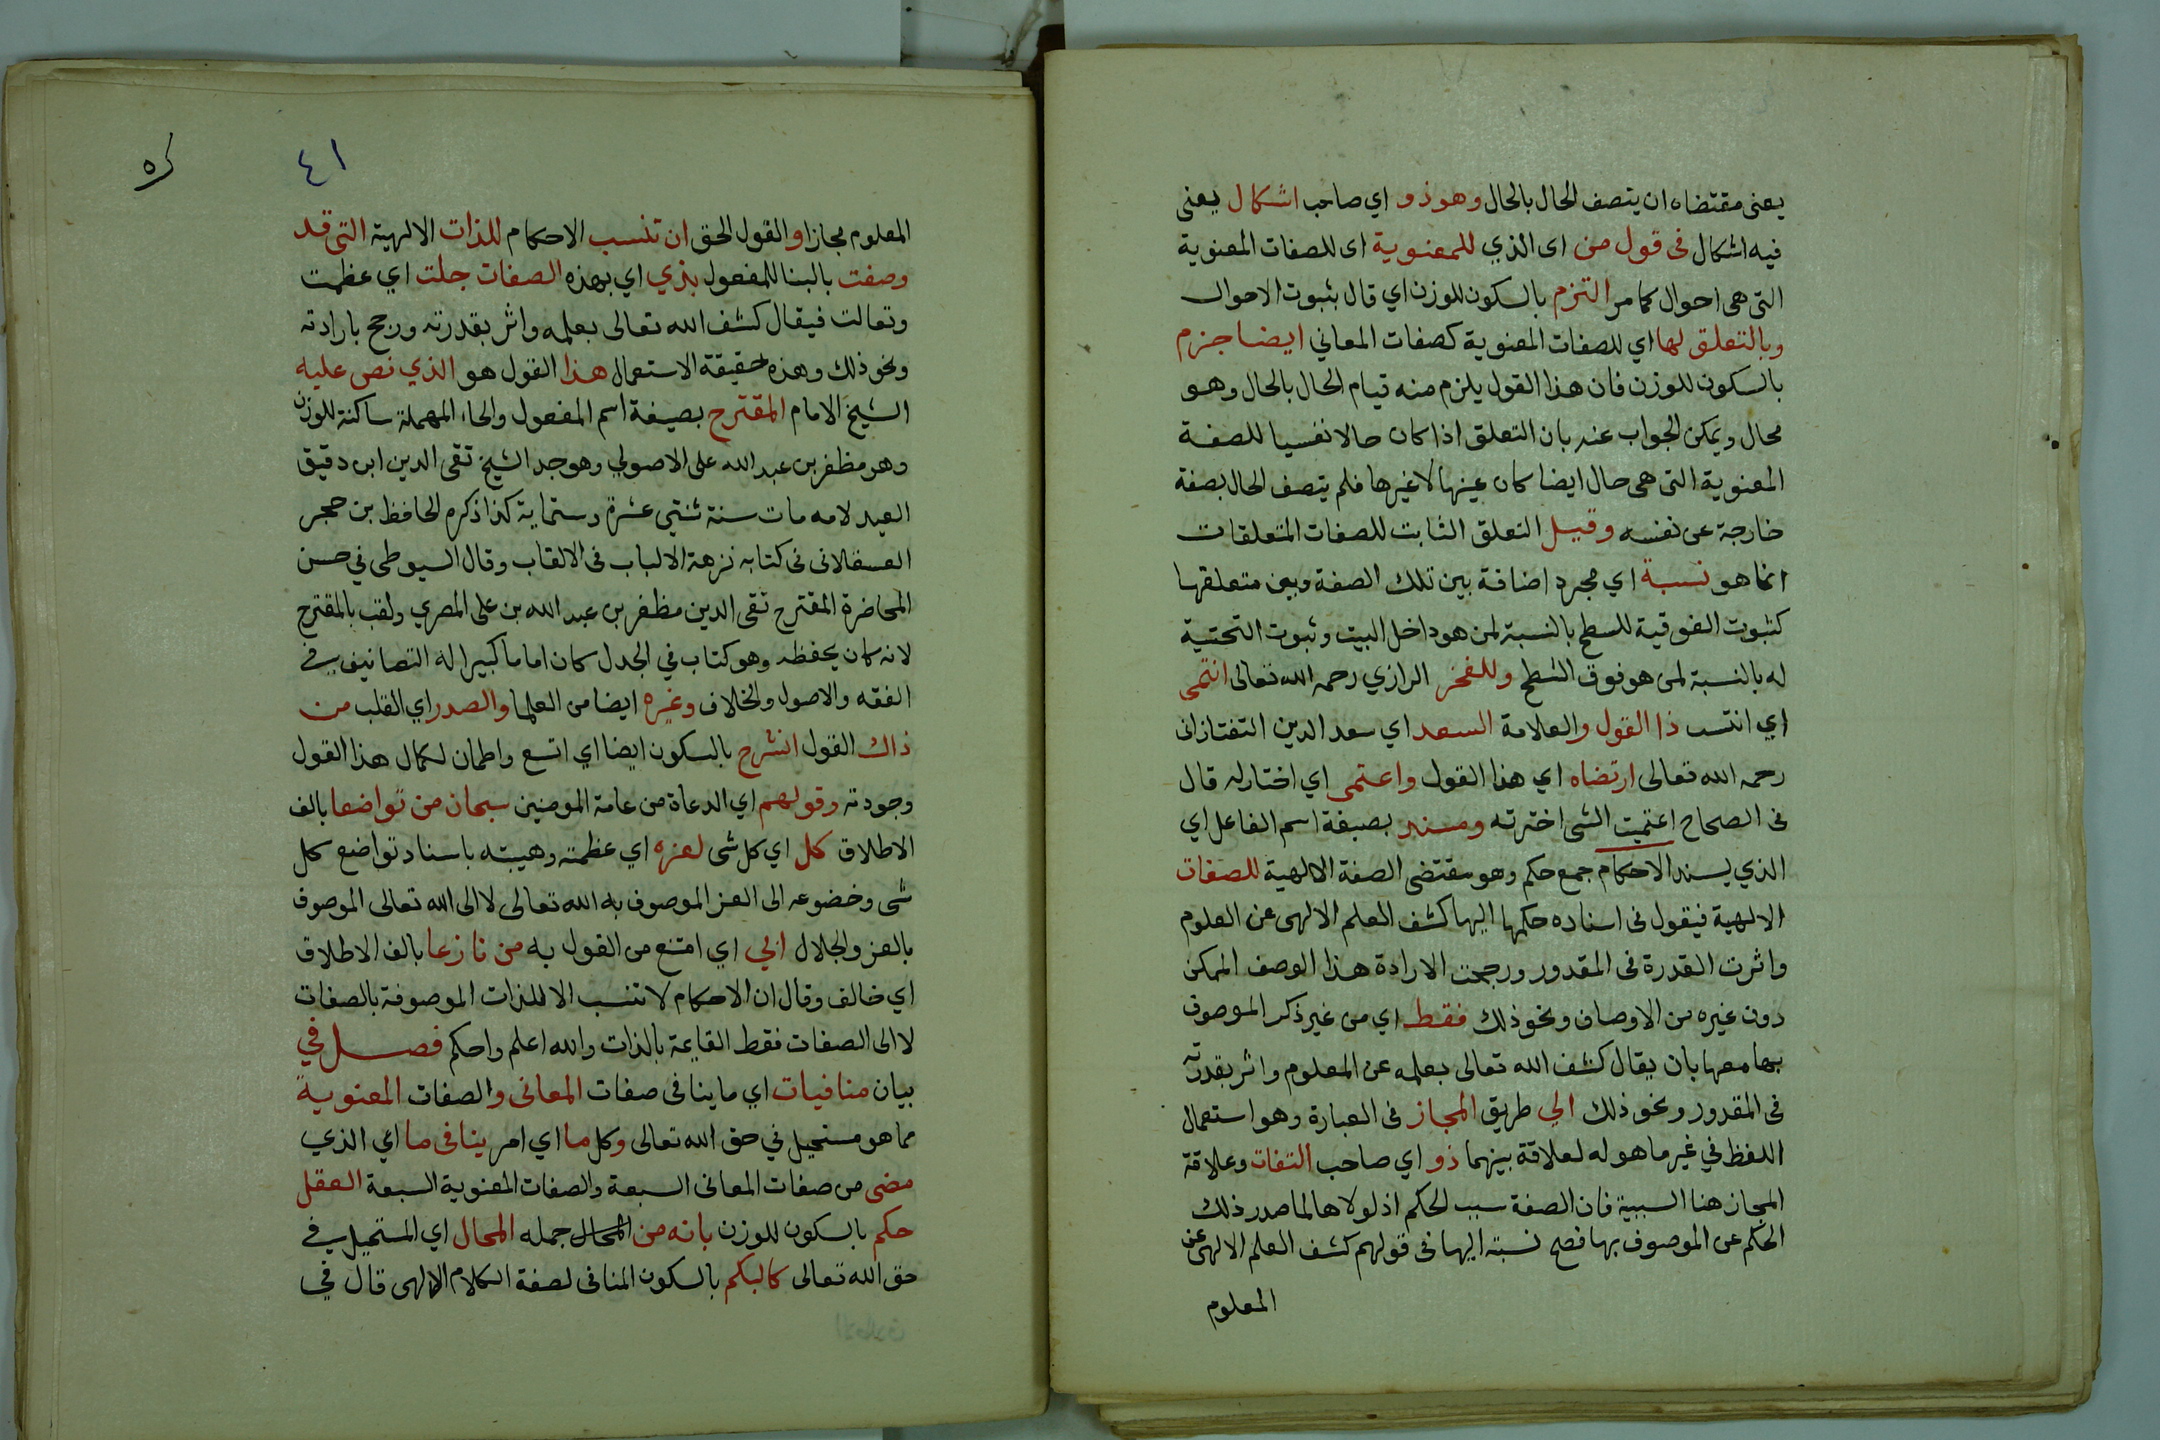 يعنى مقتضاه ان يتصف الحال بالحال وهو ذو اي صاحب اشكال يعنى
فيه اشكال فى قول من اى الذي للمعنوية اى للصفات المعنوية
التى هى احوال كما مر التزم بالسكون للوزن اي قال بثبوت الاحوال
وبالتعلق لها اي للصفات المعنوية كصفات المعاني ايضا جزم
بالسكون للوزن فان هذا القول يلزم منه قيام الحال بالحال وهو
محال ويمكن الجواب عنه بان التعلق اذا كان حالا نفسيا للصفة
المعنوية التى هى حال ايضا كان عينها لا غيرها فلم يتصف الحال بصفة
خارجة عن نفسه وقيل التعلق الثابت للصفات المتعلقات
انما هو نسبة اي مجرد اضافة بين تلك الصفة وبين متعلقها
كثبوت الفوقية للسطح بالنسبة لمن هو داخل البيت وثبوت التحتية
له بالنسبة لمن هو فوق السطح وللفخر الرازي رحمه الله تعالى انتمى
اي انتسب ذا القول والعلامة السعد اي سعد الدين التفتازانى
رحمه الله تعالى ارتضاه اي هذا القول واعتمى اي اختار له قال
فى الصحاح اعتميت الشى اخترته ومسند بصيغة اسم الفاعل اي
الذي يسند الاحكام جمع حكم وهو مقتضى الصفة الالهية للصفات
الالهية فيقول فى اسناده حكمها اليها كشف العلم الالهى عن العلوم
واثرت القدرة فى المقدور ورجحت الارادة هذا الوصف الممكن
دون غيره من الاوصاف ونحو ذلك فقط اي من غير ذكر الموصوف
بها معها بان يقال كشف الله تعالى بعلمه عن المعلوم واثر بقدرته
فى المقدور ونحو ذلك الي طريق المجاز فى العبارة وهو استعمال
اللفظ في غير ما هو له لعلاقة بينهما ذو اي صاحب التفات وعلاقة
المجاز هنا السببية فان الصفة سبب الحكم اذ لولاها لما صدر ذلك
الحكم عن الموصوف بها فصح نسبته اليها فى قولهم كشف العلم الالهى عن
المعلوم
٤١
المعلوم مجازا والقول الحق ان تنسب الاحكام للذات الالهية التى قد
وصفت بالبنا للمفعول بذي اي بهذه الصفات جلت اي عظمت
وتعالت فيقال كشف الله تعالى بعلمه واثر بقدرته ورجح بارادته
ونحو ذلك وهذه حقيقة الاستعمال هذا القول هو الذي نص عليه
الشيخ الامام المقترح بصيغة اسم المفعول والحاء المهملة ساكنة للوزن
وهو مظفر بن عبد الله على الاصولي وهو جد الشيخ تقى الدين ابن دقيق
العيد لامه مات سنة ثنتي عشرة وستماية كذا ذكره الحافظ بن حجر
العسقلانى فى كتابه نزهة الالباب فى الالقاب وقال السيوطى في حسن
المحاضرة المقترح تقى الدين مظفر بن عبد الله بن على المصري ولقب بالمقترح
لانه كان يحفظه وهو كتاب في الجدل كان اماما كبيرا له التصانيف في
الفقه والاصول والخلاف وغيره ايضا من العلما والصدر اي القلب من
ذاك القول انشرح بالسكون ايضا اي اتسع واطمان لكمال هذا القول
وجودته وقولهم اي الدعاة من عامة المومنين سبحان من تواضعا بالف
الاطلاق كل اي كل شى لعزه اي عظمته وهيبته باسناد تواضع كل
شى وخضوعه الى العز الموصوف به الله تعالى لا الى الله تعالى الموصوف
بالعز والجلال ابي اي امتنع من القول به من نازعا بالف الاطلاق
اي خالف وقال ان الاحكام لا تنسب الا للذات الموصوفة بالصفات
لا الى الصفات فقط القايمة بالذات والله اعلم واحكم فصل في
بيان منافيات اي ما ينافى صفات المعانى والصفات المعنوية
مما هو مستحيل في حق الله تعالى وكل ما اي امر ينافى ما اي الذي
مضى من صفات المعانى السبعة والصفات المعنوية السبعة العقل
حكم بالسكون للوزن بانه من المحال جمله المحال اي المستحيل في
حق الله تعالى كالبكم بالسكون المنافى لصفة الكلام الالهى قال في